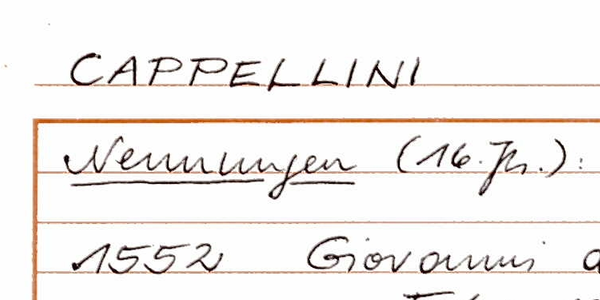 CAPPELLINI
Nennungen (16. Jh.):
1552 Giovanni